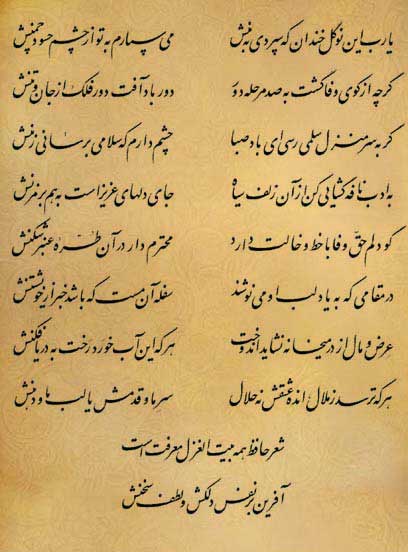 یارب این نوگل خندان که سپردی به منش می سپارم به تو از چشم حسود چمنش
گرچه از کوی وفا گشت به صد مرحله دور دور باد آفت دور فلک از جان و تنش
گر به سرمنزل سلمی رسی ای باد صبا چشم دارم که سلامی برسانی ز منش
به ادب نافه گشایی کن از آن زلف سیاه جای دلهای عزیز است به هم بر مزنش
گو دلم حقّ وفا با خط و خالت دارد محترم دار در آن طُرّه عنبر شکنش
در مقامی که به یاد لب او می نوشند سفله آن مست که باشد خبر از خویشتنش
عرض و مال از در میخانه نشاید اندوخت هرکه این آب خورد رخت به دریا فکنش
هرکه ترسد ز ملال اندُه عشقش نه حلال سر ما و قدمش یا لب ما و دهنش
شعر حافظ همه بیت الغزل معرفت است
آفرین بر نفس دلکش و لطف سخنش